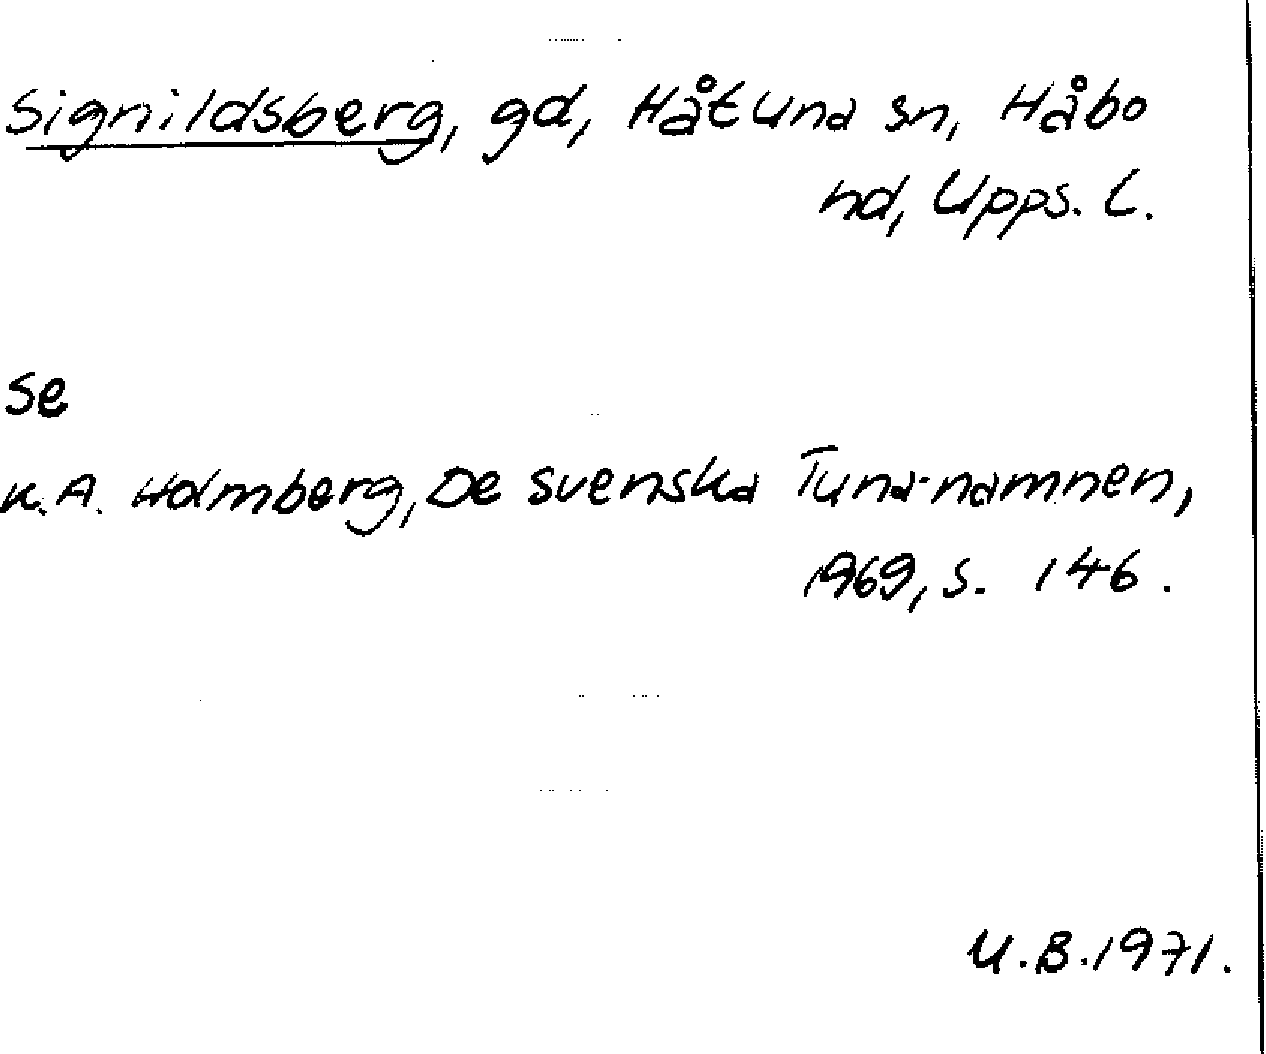 Signildsberg, gd, Håtuna sn, Håbo
hd, Upps. L.
se
K.A. Holmberg, De svenska Tuna-namnen,
1969, s. 146.
U.B. 1971.